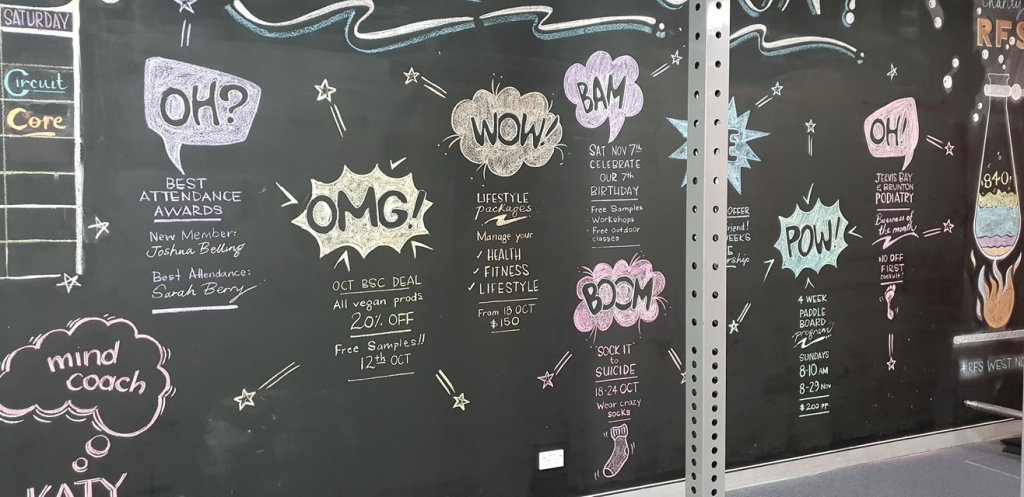 SATURDAY
Circuit
Core
OH?
BEST
ATTENDANCE
AWARDS
New Member:
Joshua Belling
Best Attendance:
Sarah Berry
mind
coach
KATY
OMG!
OCT BSC DEAL
All vegan prods
20% OFF
Free Samples!!
12th OCT
WOW!
LIFESTYLE
packages
Manage your
✓ HEALTH
✓ FITNESS
✓ LIFESTYLE
From 18 OCT
$150
BAM
SAT NOV 7th
CELEBRATE
OUR 7th
BIRTHDAY
· Free Samples
· Workshops
· Free outdoor
classes
BOOM
SOCK IT
to
SUICIDE
18-24 OCT
Wear crazy
socks
OFFER
POW!
4 WEEK
PADDLE
BOARD
program
SUNDAYS
8-10 AM
8-29 Nov
$200 PP
OH!
JERVIS BAY
& BRUNTON
PODIATRY
Business of
the month
NO OFF
FIRST
consult!
Charity
RFS
840!
#RFS WEST